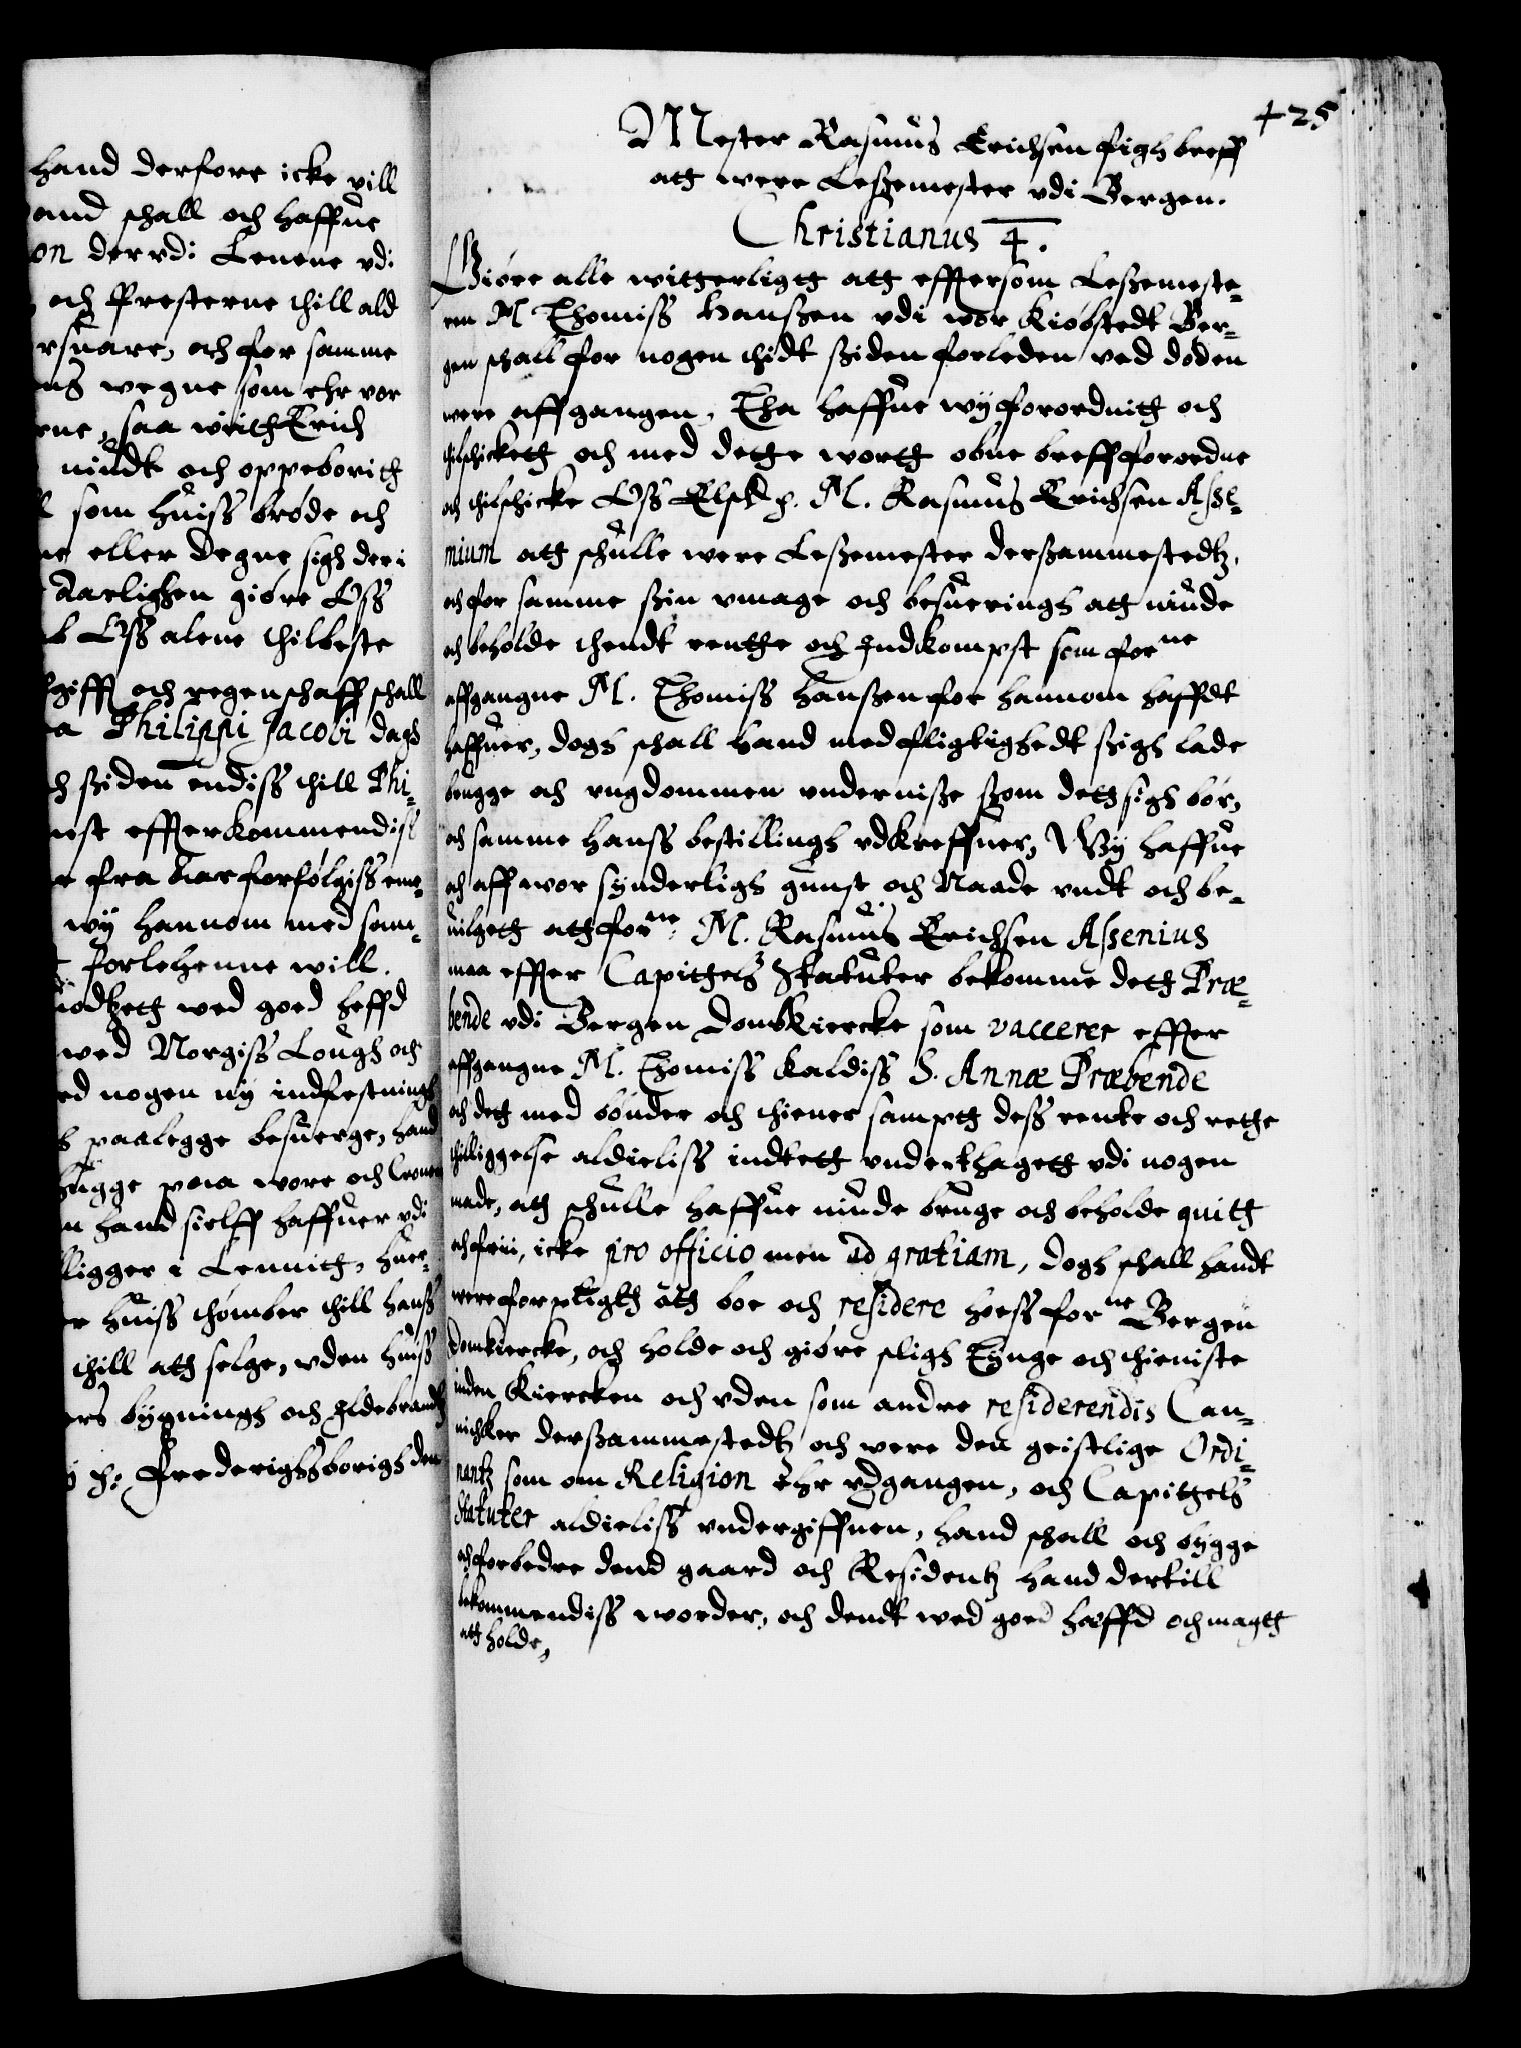 hand derfore icke vill
and schall och haffue
on der vdi Lenene vdi
och Presterne thill ald
rsuare, och for samme
ens wegne som ehr vor
rne, saa vith Erich
niudt och oppeborith
som huiss brøde och
ne eller degne sigh der i
daarlighen giøre Oss
b Oss alene thilbeste
gifft och regenschaff schall
a Philippi Jacobi dagh
h ssiden endiss thill Phi-
nest effterkommendiss
r fra Aar forfølgiss eme-
wÿ hannom med sam-
forlehenne will.
wed goed heffd
wed Norgiss Lough och
ed nogen nÿ indfestningh
h paalegge besuerge, hand
hugge paa wore och Cronen
n hand sielff haffuer vdi
ligger i Lennith, huer-
r huiss thømber thill hanss
thill ath selge, vden huiss
ers bÿgningh och Jldebrandtz
p: Frederighssborigh den
425
Mester Rasmus Erichsen figh breff
att were Lessemester vdi Bergen.
Christianus 4.
Giøre alle witterligtt att efftersom Lessemeste-
ren M Thomiss Hanssen vdi wor Kiøbstedt Ber-
gen schall for nogen thidt ssiden forleden ved døden
were affgangen, Tha haffue wÿ forordnith och
thilschicketh och med dette wortt obne breff forordne
och thilschicke Oss Elsk. h. M. Rasmus Erichsen Asse-
nium att schulle were Lessemester derssammestedtz,
och for samme ssin vmage och besueringh att niude
och beholde thendt renthe och Jndkompst som forne
affgangne M. Thomiss Hanssen for hannom hafft
haffuer, dogh schall hand med flitighedt ssigh lade
brugge och vngdommen vnderuisse ssom deth sigh bør,
och samme hanss bestillingh vdkreffuer, Wÿ haffue
och aff wor sÿnderligh gunst och Naade vndt och be-
uilgeth ath forne M. Rasmus Erichsen Assenius
maa effter Capittels Statuter bekomme deth Præ-
bende vdi Bergen Domkiercke som vaccerer effter
affgangne M. Thomiss kaldiss S. Annæ Præbende
och dett med bønder och thiener sampt dess rente och rette
thilliggelse aldieliss indtett vnderthagett vdi nogen
made, ath schulle haffue niude bruge och beholde quitt
och frii, icke pro officio men ad gratiam, dogh schall handt
were forpligth ath boe och residere hoess forne Bergen
domkiercke, och holde och giøre sligh Tÿnge och thieniste
inden Kiercken och vden som andre residerendis Can-
nicher derssammestedtz och were den geistlige Ordi-
nantz som om Religion ehr vdgangen, och Capittels
Statuter aldieliss vndergiffuen, hand schall och bÿgge
och forbedre dend gaard och Residentz hand dertill
bekommendiss worder, och dendt wed goed hæffd och magtt
ath holde,